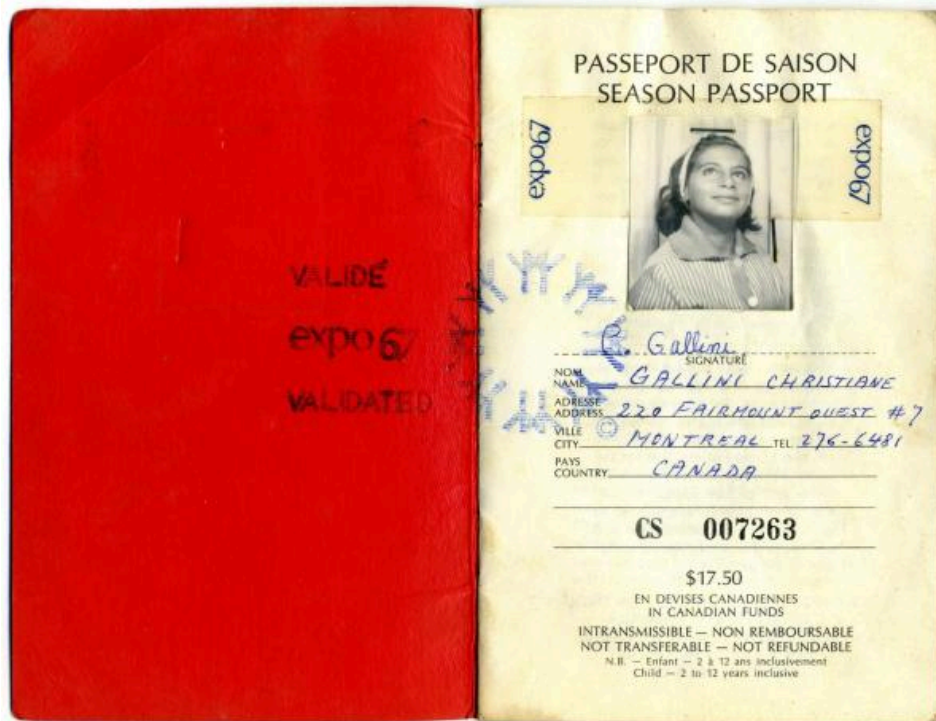 VALIDÉ
expo67
VALIDATED
PASSEPORT DE SAISON
SEASON PASSPORT
expo67
expo67
C. Gallini
SIGNATURE
NOM
NAME GALLINI CHRISTIANE
ADRESSE
ADDRESS 220 FAIRMOUNT OUEST #7
VILLE
CITY MONTREAL TEL 276-6481
PAYS
COUNTRY CANADA
©
CS 007263
$17.50
EN DEVISES CANADIENNES
IN CANADIAN FUNDS
INTRANSMISSIBLE — NON REMBOURSABLE
NOT TRANSFERABLE — NOT REFUNDABLE
N.B. — Enfant — 2 à 12 ans inclusivement
Child — 2 to 12 years inclusive